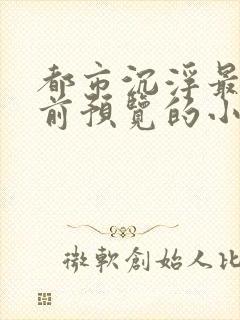 都市沉浮最
前預覽的小
微軟創始人比